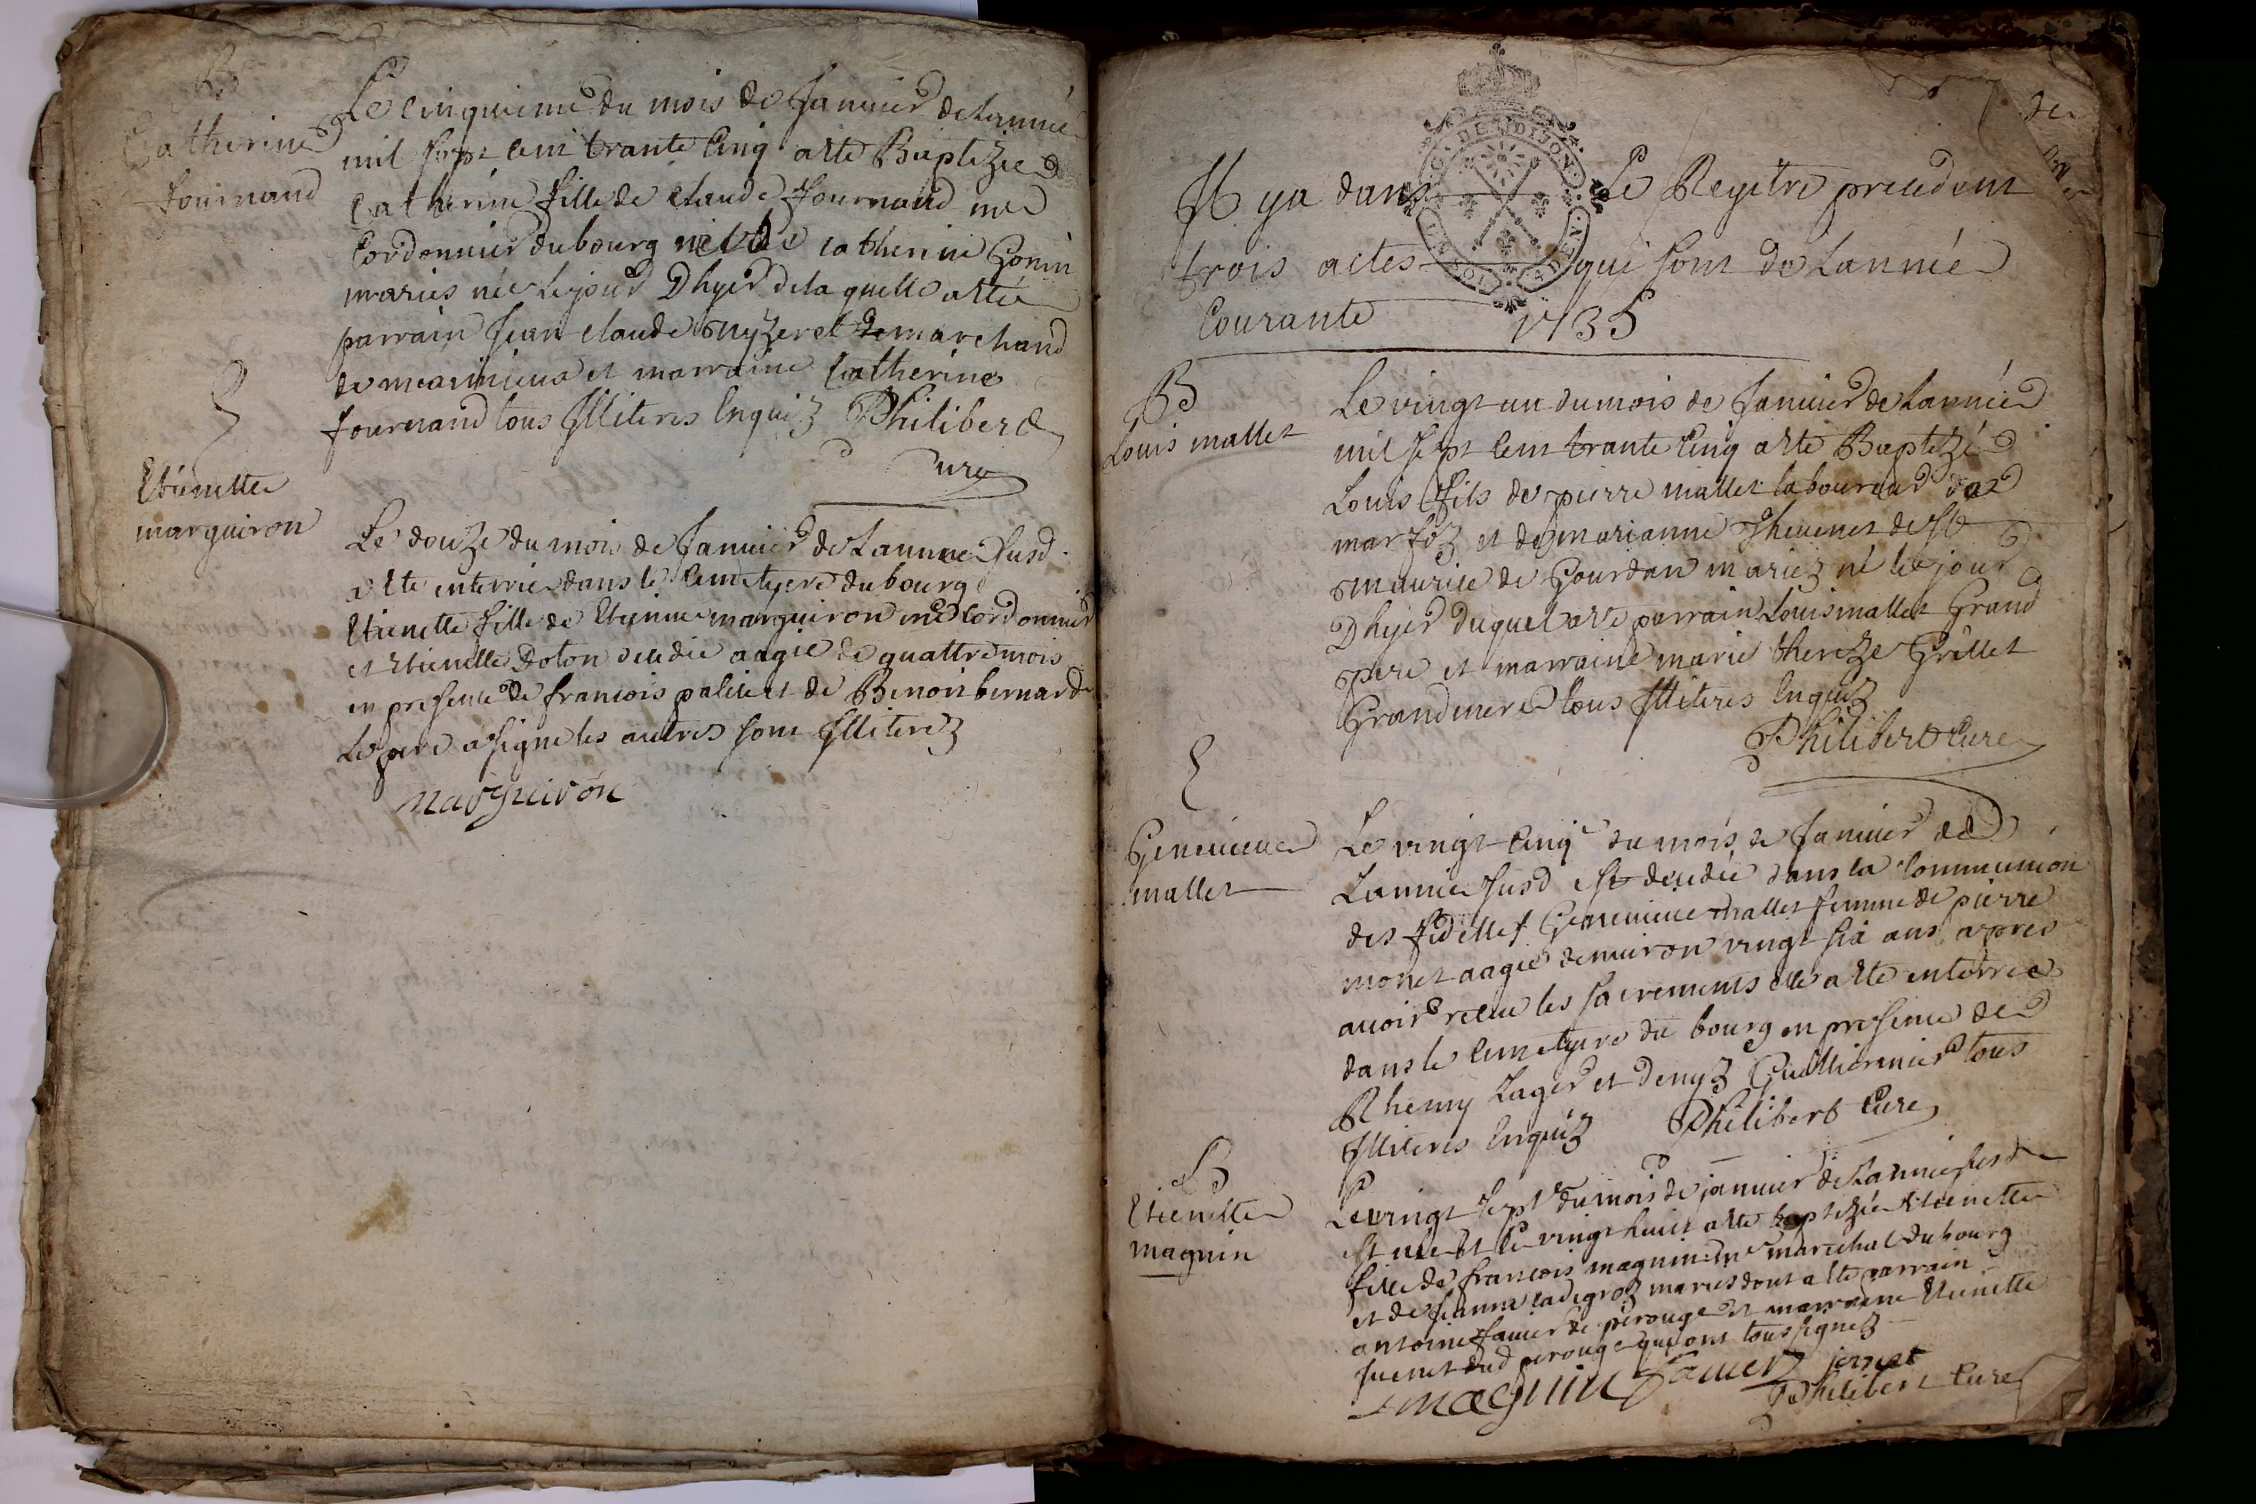 B
Catherine
fournand
Le cinquieme du mois de Januier de Lannée
mil sept cent trante cinq a esté Baptizée
Catherine fille de claude fournand me
Cordonnier du bourg et de catherine Gonin
mariés née le jour Dhyer de laquelle a esté
parrain Jean claude marchand
de meximieux et marraine Catherine
fournand tous Illiteres Enquiz Philibert
Curé
E
Etienette
marguiron
Le douze du mois de Januier de Lannee susd
a esté enterrée dans le cemetyere du bourg
Etienette fille de Etienne marguiron me Cordonnier
et Etienette Doton decedée aagée de quattre mois
en presence de francois palice et de Benoit bernard
Le pere a signe les autres sont Illiterez
Marguiron
de
Il ya dans Le Regitre precedent
trois actes qui sont de Lannée
Courante 1735
G. DE DIJON
B
Louis mallet
Le vingt un du mois de Januier de Lannée
mil sept cent trante cinq a esté Baptizé
Louis fils de pierre mallet laboureur de
marfoz et de marianne Theuenet de St
maurice de Gourdan mariez né le jour
Dhyer duquel a esté parrain Louis mallet Grand
pere et marraine marie thereze Grillet
Grandmere tous Illiteres Enquiz
Philibert Curé
E
Geneuieue
mallet
Le vingt cinqe du mois de Januier de
Lannée susd est decedée dans la Communion
des fidelles Geneuieue mallet femme de pierre
monet aagée denuiron vingt six ans apres
auoir receu les sacrements elle a esté enterrée
dans le cemetyere du bourg en presence de
Rhemy Lager et denyz Guillierminer tous
Illiteres Enquiz Philibert Curé
B
Etienette
magnin
Le vingt sept du mois de januier de Lannée susd
est née et le vingt huit a esté baptizée Etienette
fille de francois magnin me marechal du bourg
et de jeanne cadegroz mariés dont a esté parrain
antoine Janier de perouge et marraine Etienette
juenet dud perouge qui ont tous signez
magnin Janier jeunet
Philibert Curé